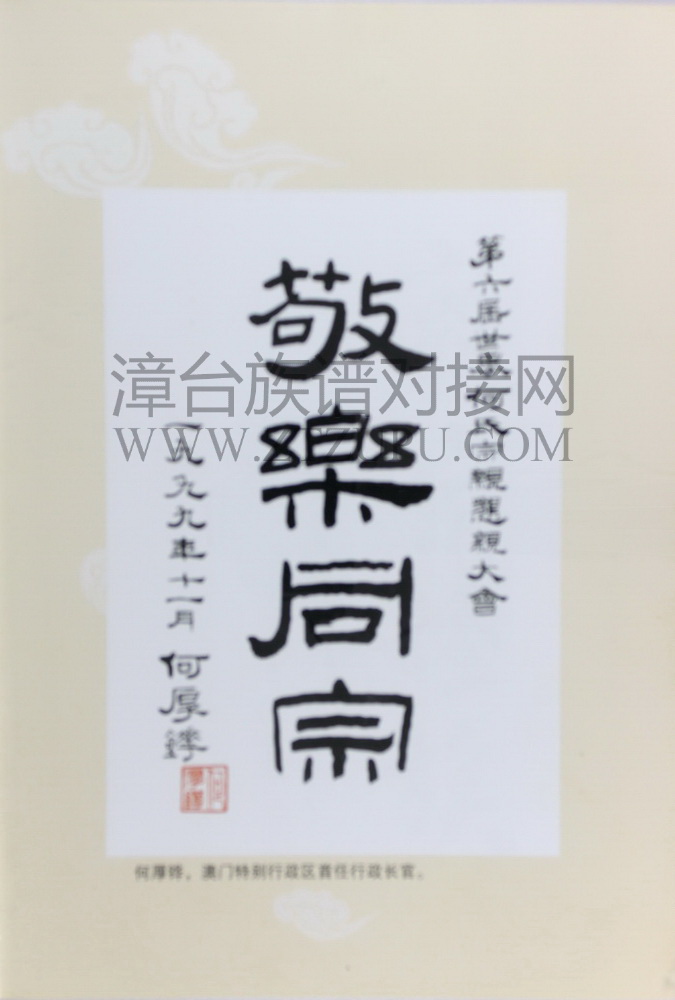 第六屆世界何氏宗親懇親大會
敬樂同宗
一九九九年十一月 何厚鏵
漳台族谱对接网
WWW.ZTZUPU.COM
何厚铧，澳门特别行政区首任行政长官。